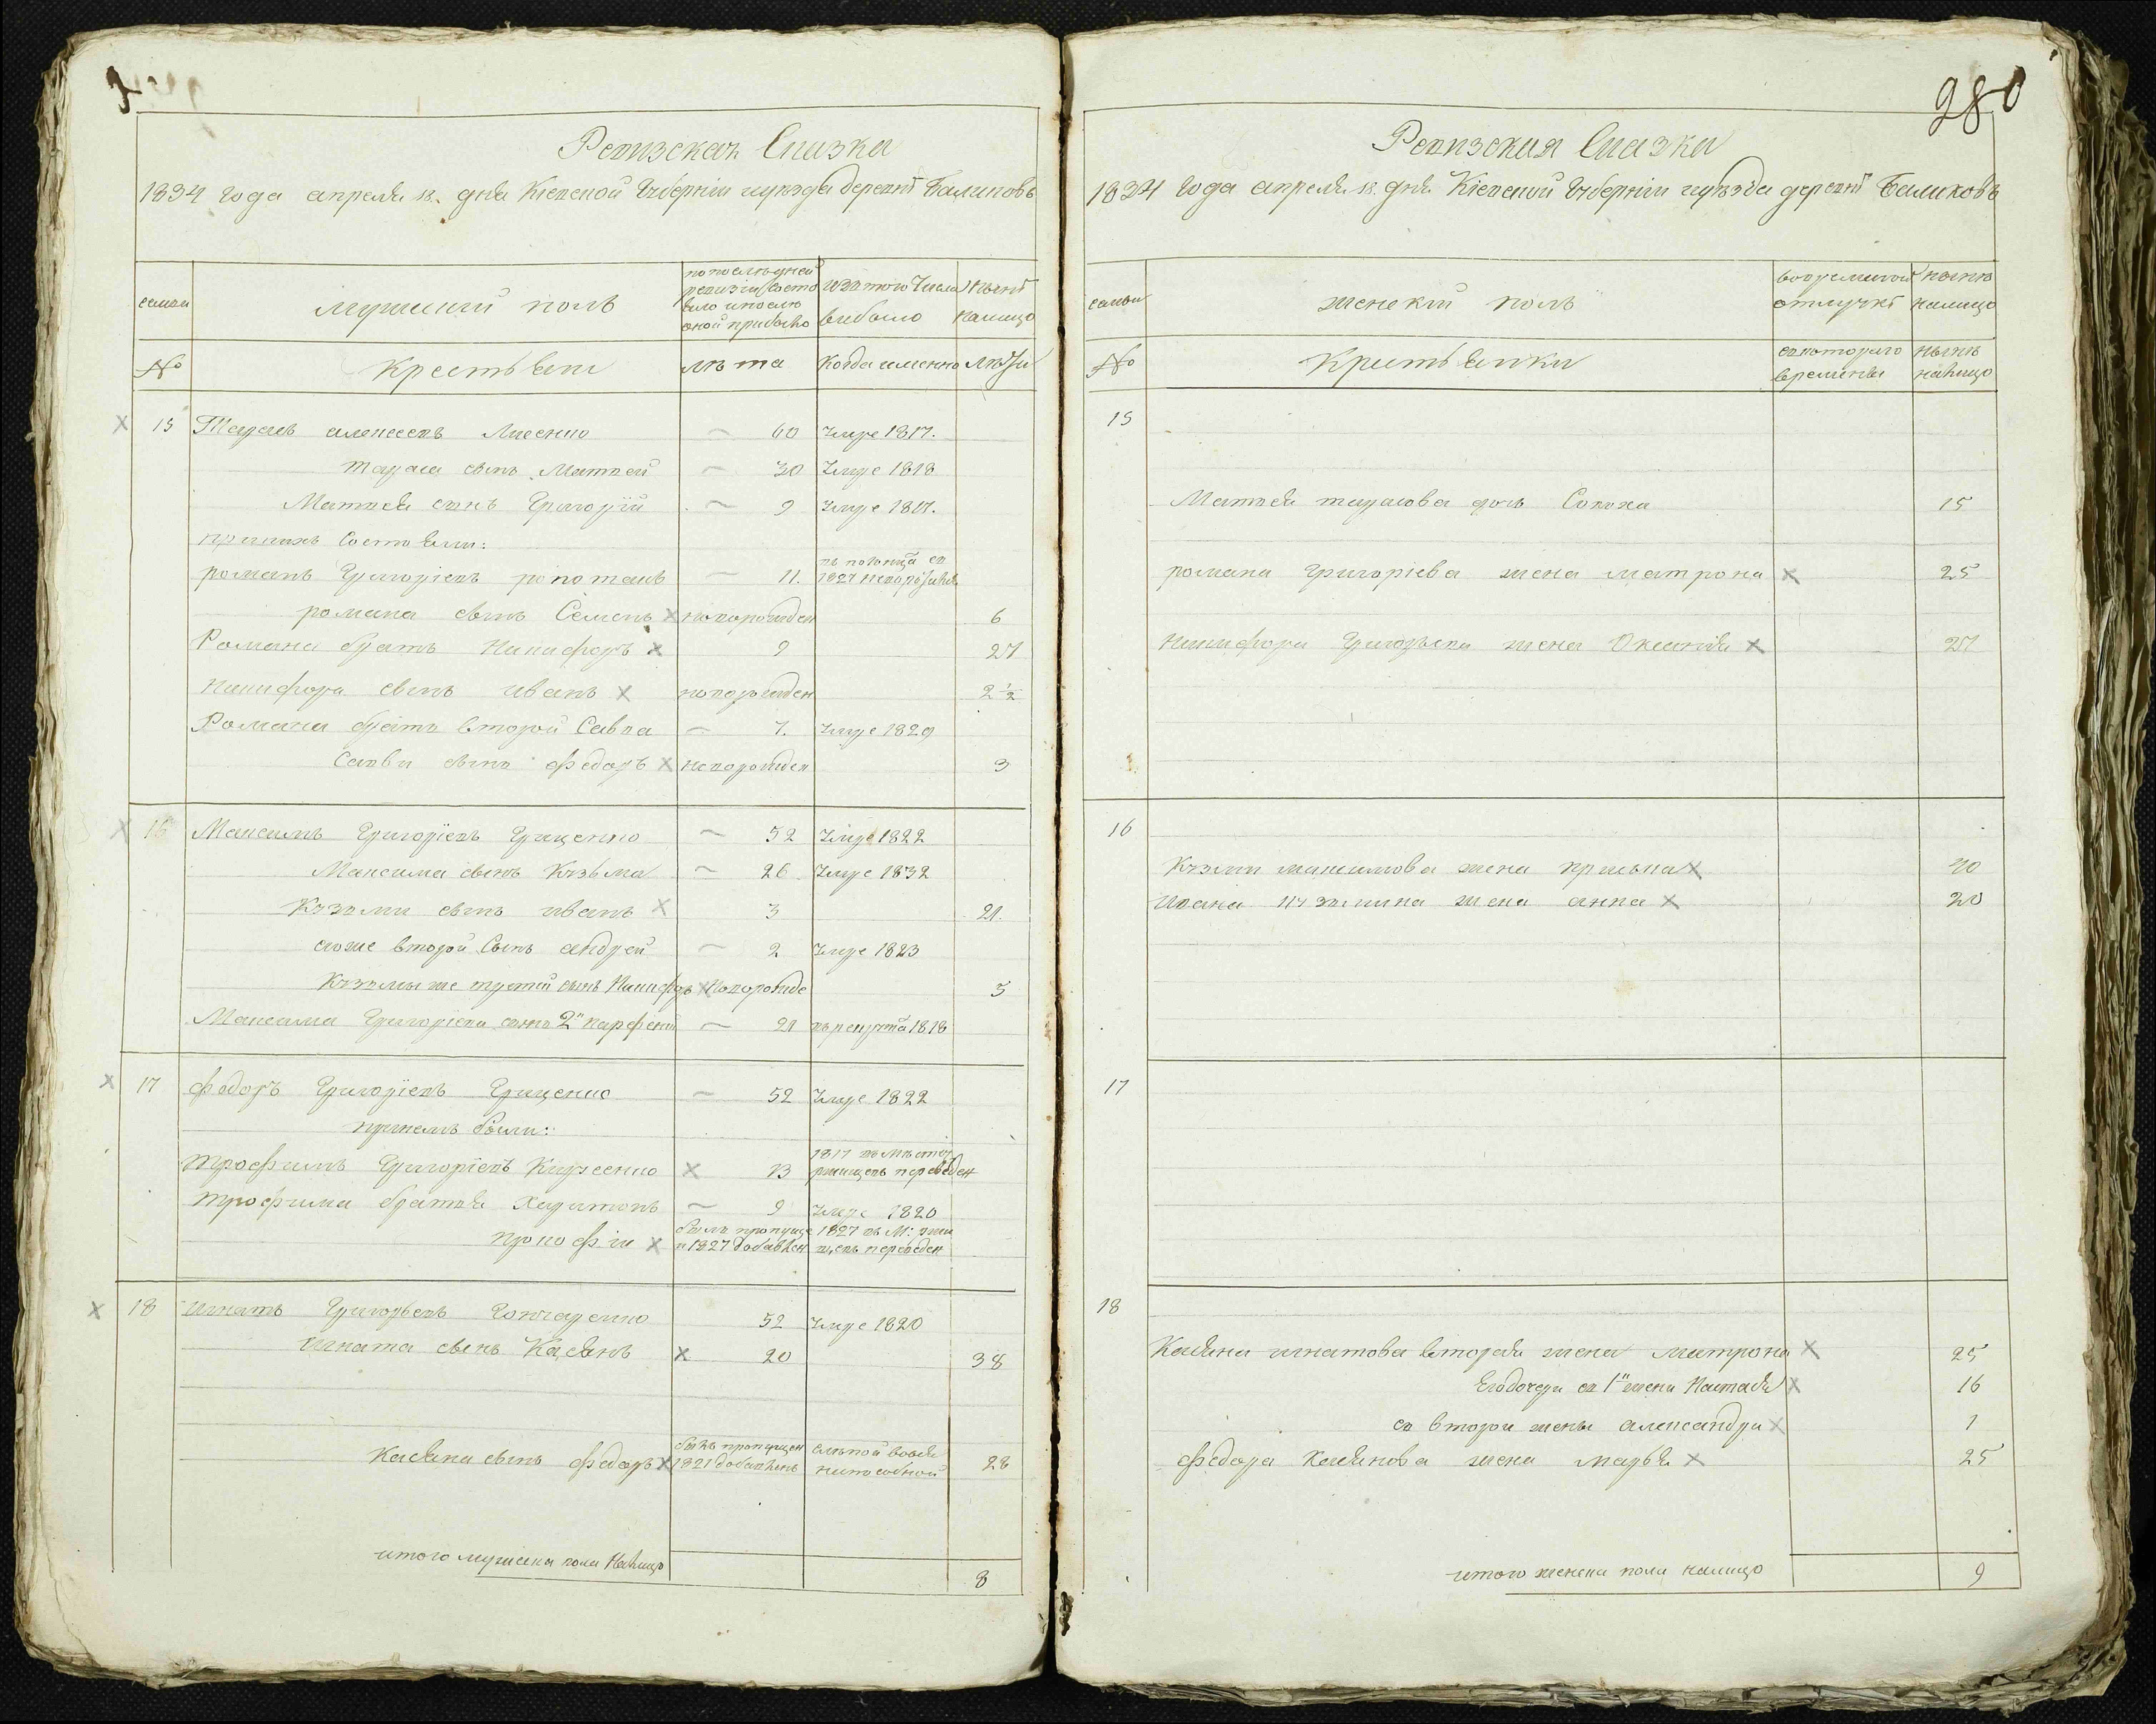 Ревизская Сказка
1834 года апреля 18. дня Кіевской Губерніи и уъзда деревнѣ Балыковъ
семьи
мужский полъ
по послѣдней ревизіи состояло и после оной прибыло
изъ того числа выбыло
нынѣ налицо
№
Крестьяни
лѣта
когда именно
лѣты
15 Тарасъ алексеевъ Лисенко 60 умре 1817.
тараса сынъ Матвей 30 умре 1818
Матвея сынъ Григорій 9 умре 1817.
при нихъ состояли:
романъ Григоріевъ 11. 1827
романа сынъ Семенъ новорожден 6
Романа братъ Никифоръ 9 27
никифора сынъ иванъ новорожден 2 ½
Романа братъ второй Савва 7. умре 1829
Саввы сынъ федоръ новорожден 3
16 Максимъ Григоріевъ Гриценко 52 умре 1822
Максима сынъ Кузьма 26 умре 1832
Кузьми сынъ иванъ 3 21.
его же второй сынъ андрей 2 умре 1823
Кузьмы же третій сынъ Никифоръ новорожде 5
Максима Григоріева сынъ 2й парфений 21 въ рекрута 1818
17 федоръ Григоріевъ Гриценко 52 умре 1822
при немъ были:
трофимъ Григоріевъ 13 1817 въ мѣстеч ржищевъ переведен
трофима братья Харитонъ 9 умре 1820
прокофій былъ пропуще и 1827 добавлен 1827 въ М: ржищевъ переведен
18 игнатъ Григорьевъ Гончаренко 52 умре 1820
Игната сынъ Касянъ 20 38
Касяна сынъ федоръ былъ пропущен 1821 добавленъ слѣпой 28
итого мужеска пола налицо 8
280
Ревизская Сказка
1834 года апреля 18. дня Кіевской Губерніи и уъзда деревнѣ Балыковъ
семьи
женскій полъ
во временной отлучкѣ
нынѣ налицо
№
Крестьянки
съ котораго времены
нынѣ налицо
15
Матвея тарасова дочь 15
романа Григоріева жена матрона 25
никифора Григорьева жена Оксинія 27
16
Кузми максимова жена 40
Ивана кузьмина жена анна 20
17
18
Касяна игнатова вторая жена матрона 25
Его дочери съ 1й жени Настася 16
съ второй жены александра 1
федора Касянова жена марья 25
итого женска пола налицо 9